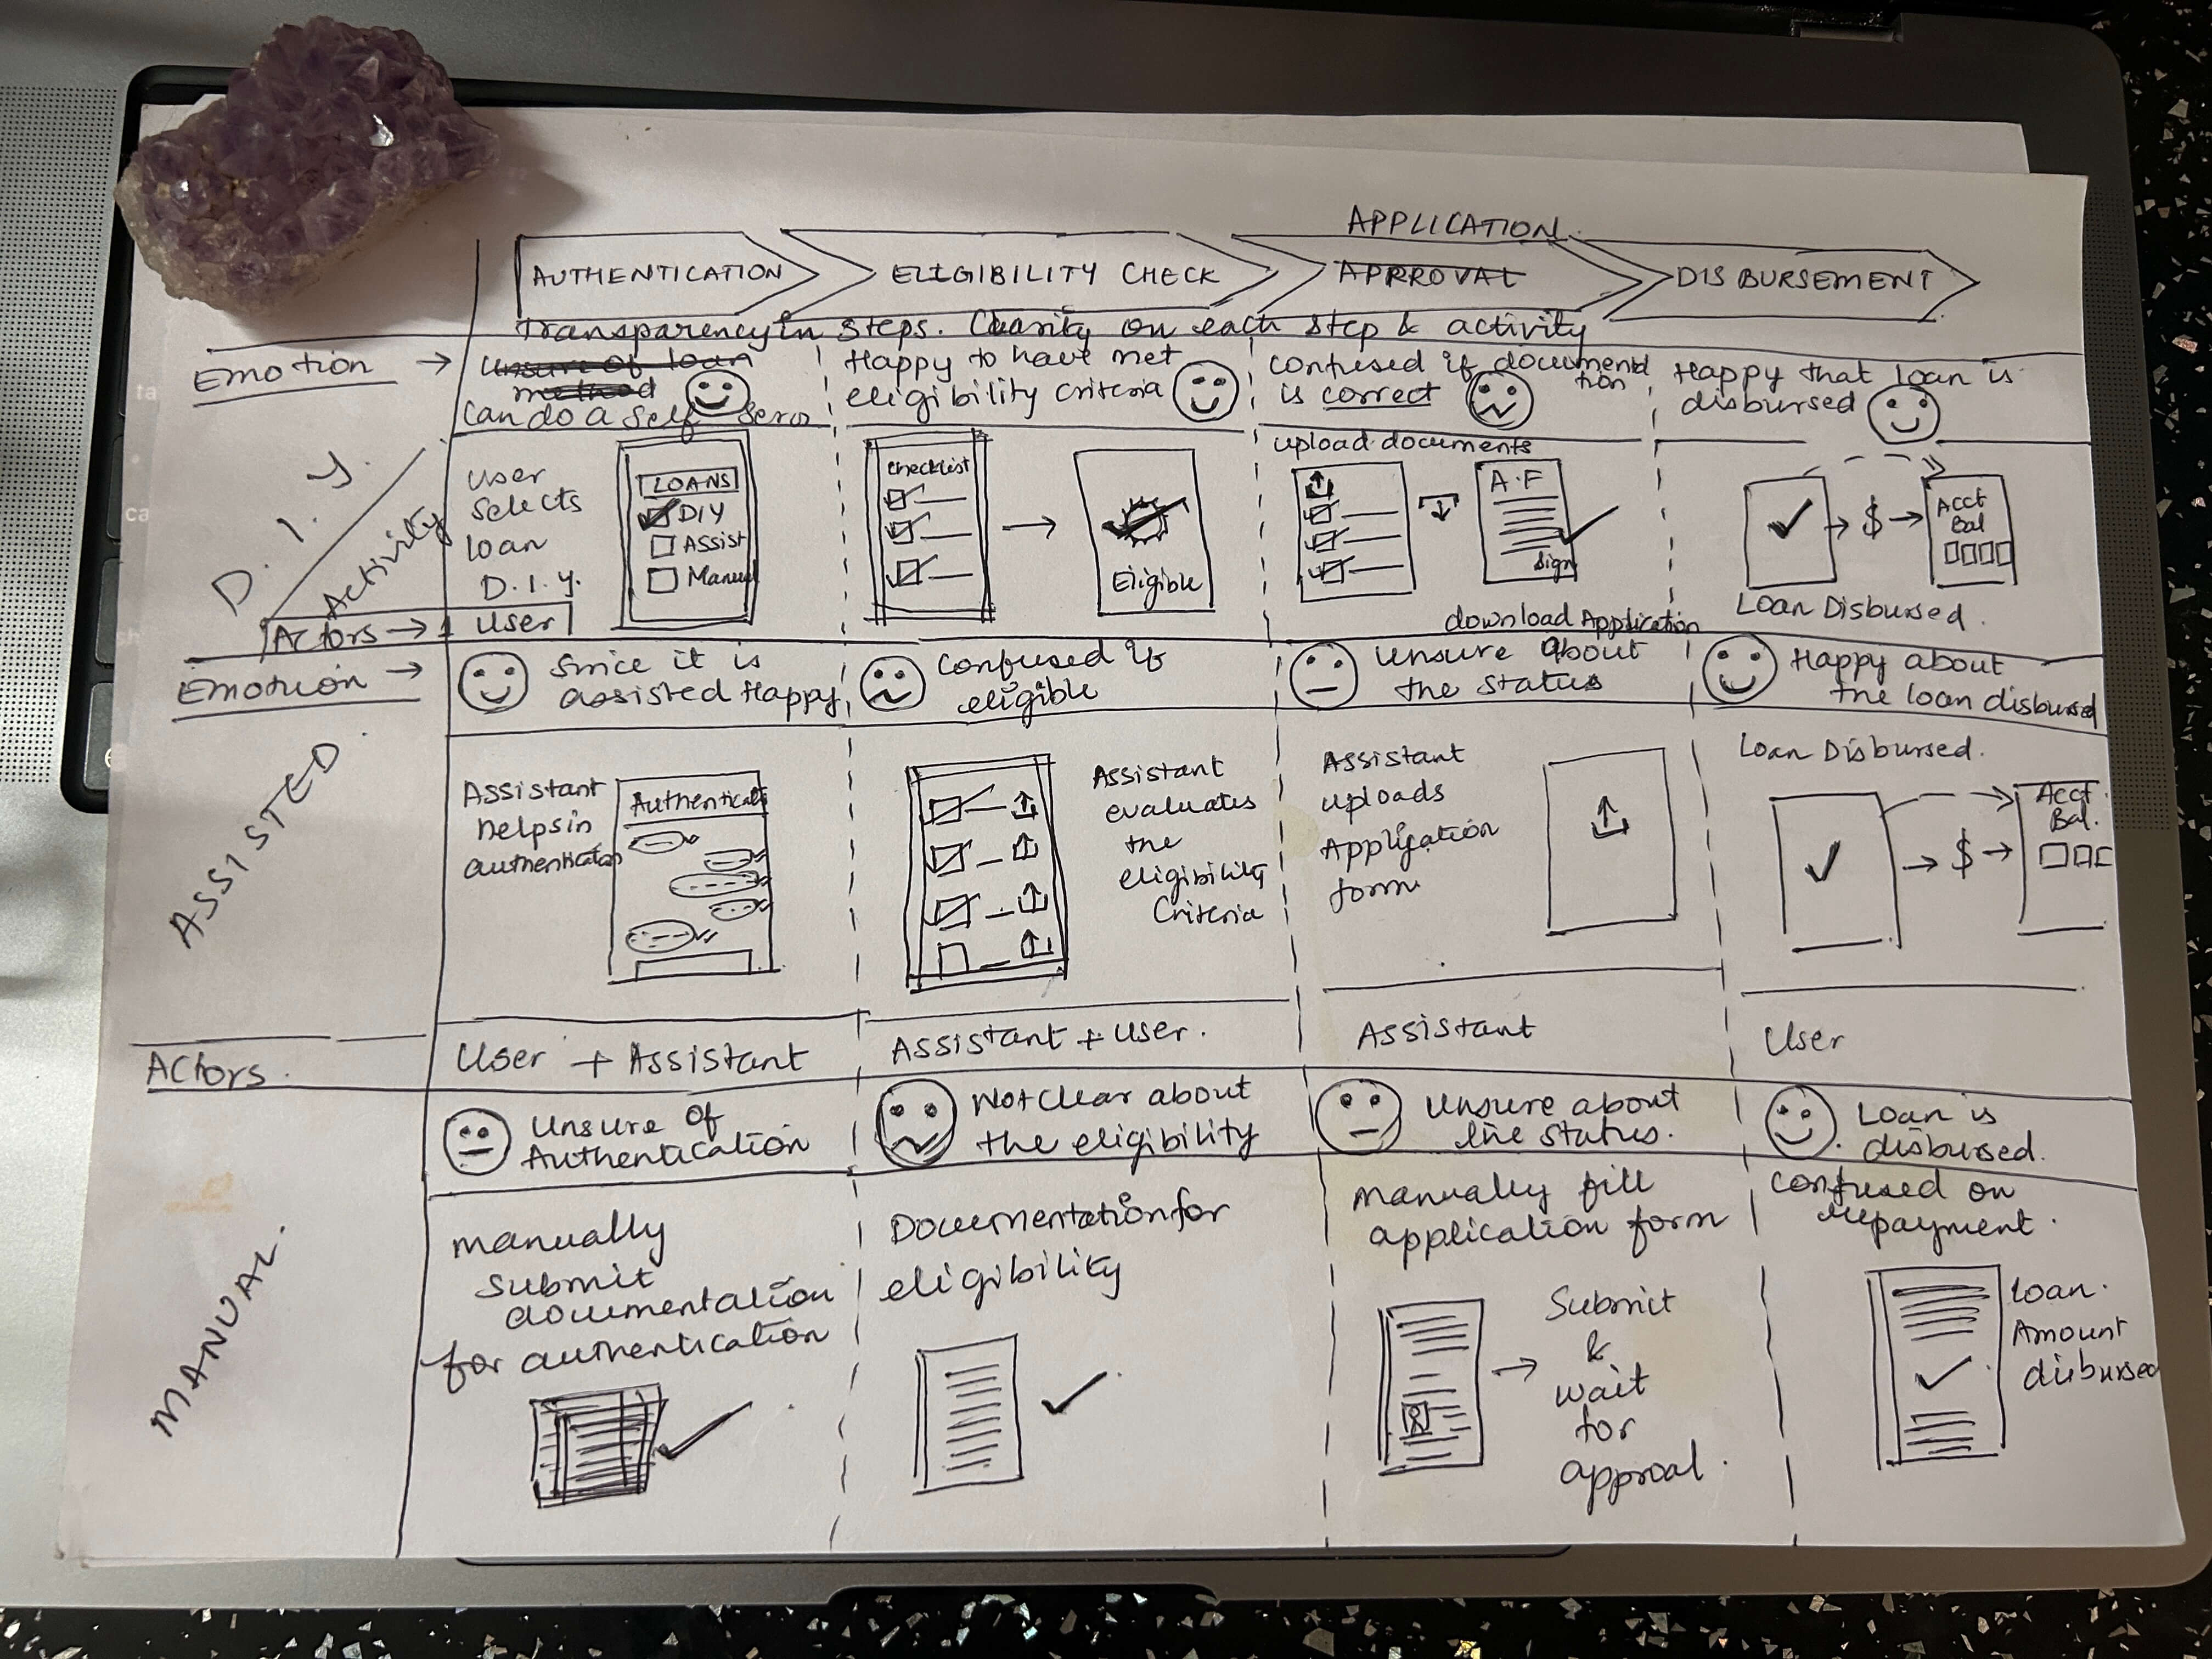 APPLICATION
AUTHENTICATION
ELIGIBILITY CHECK
APRROVAL
DISBURSEMENT
Transparency in steps. Clarity on each step & activity
Emotion →
Unsure of loan
method
Can do a self serv
Happy to have met
eligibility criteria
Confused if documentd
tion
is correct
Happy that loan is
disbursed
D. I. Y.
Activity
Actors →
User
Selects
loan
D.I.Y.
User
LOANS
DIY
Assist
Manu
Checklist
Eligible
upload documents
A.F
Sign
download Application
$
Acct
Bal
Loan Disbursed.
Emotion →
Since it is
assisted Happy
Confused if
eligible
Unsure about
the status
Happy about
the loan disbursed
ASSISTED.
Assistant
helps in
authentication
Authenticati
Assistant
evaluates
the
eligibility
Criteria
Assistant
uploads
Application
form
Loan Disbursed.
$
Acct.
Bal.
Actors.
User + Assistant
Assistant + User.
Assistant
User
Unsure of
Authentication
Not Clear about
the eligibility
Unsure about
the status.
Loan is
disbursed.
MANUAL.
manually
submit
documentation
for authentication
Documentation for
eligibility
manually fill
application form
Submit
&
wait
for
approal.
Confused on
repayment.
Loan.
Amount
disbursed